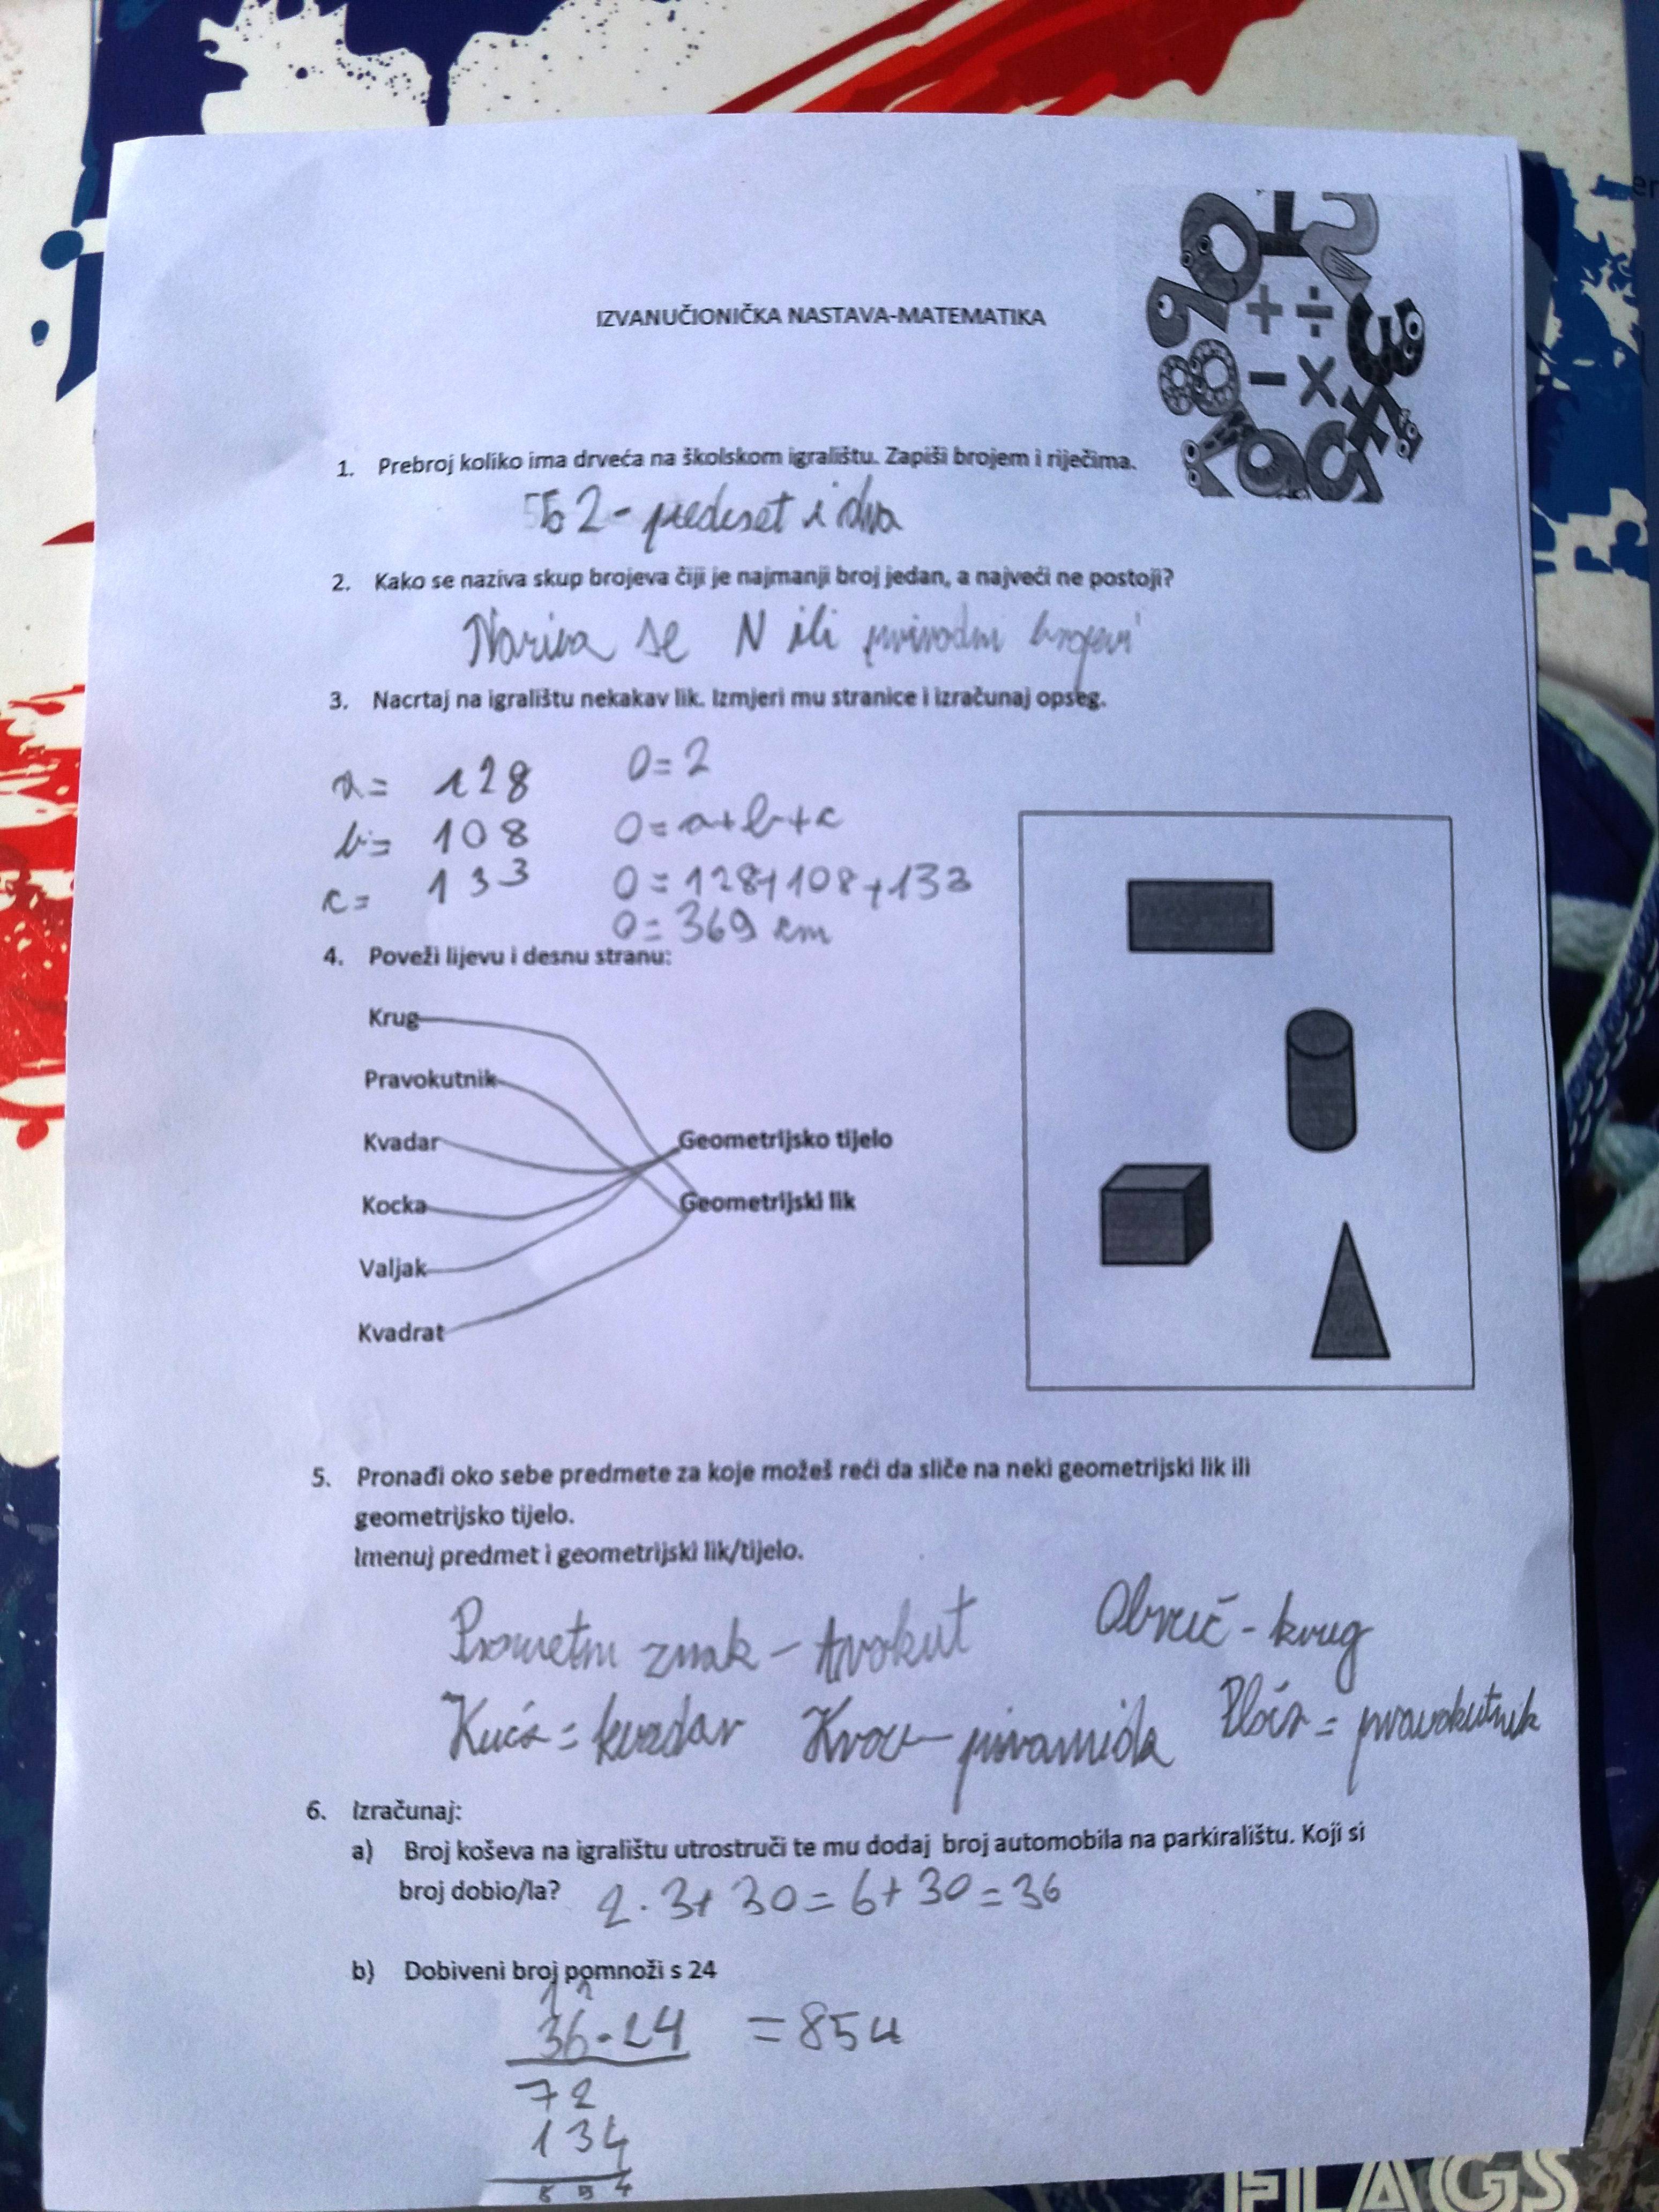 IZVANUČIONIČKA NASTAVA-MATEMATIKA
1. Prebroj koliko ima drveća na školskom igralištu. Zapiši brojem i riječima.
52 - pedeset i dva
2. Kako se naziva skup brojeva čiji je najmanji broj jedan, a najveći ne postoji?
Naziva se N ili prirodni brojevi
3. Nacrtaj na igralištu nekakav lik. Izmjeri mu stranice i izračunaj opseg.
a= 128 O=2
b= 108 O=a+b+c
c= 133 O=128+108+133
O=369 cm
4. Poveži lijevu i desnu stranu:
Krug
Pravokutnik
Kvadar
Geometrijsko tijelo
Kocka
Geometrijski lik
Valjak
Kvadrat
5. Pronađi oko sebe predmete za koje možeš reći da sliče na neki geometrijski lik ili
geometrijsko tijelo.
Imenuj predmet i geometrijski lik/tijelo.
Prometni znak - trokut Obruč - krug
Kuća = kvadar Krov - piramida Ploča = pravokutnik
6. Izračunaj:
a) Broj koševa na igralištu utrostruči te mu dodaj broj automobila na parkiralištu. Koji si
broj dobio/la? 2·3+30=6+30=36
b) Dobiveni broj pomnoži s 24
36·24 =854
72
134
854
FLAGS